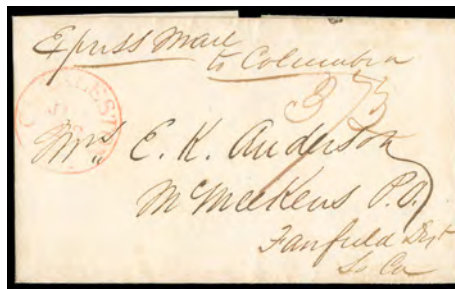 Express Mail
to Columbia
37½
CHARLEST
Mrs. E. K. Anderson
McMeekens P.O.
Fairfield Dist
So Ca